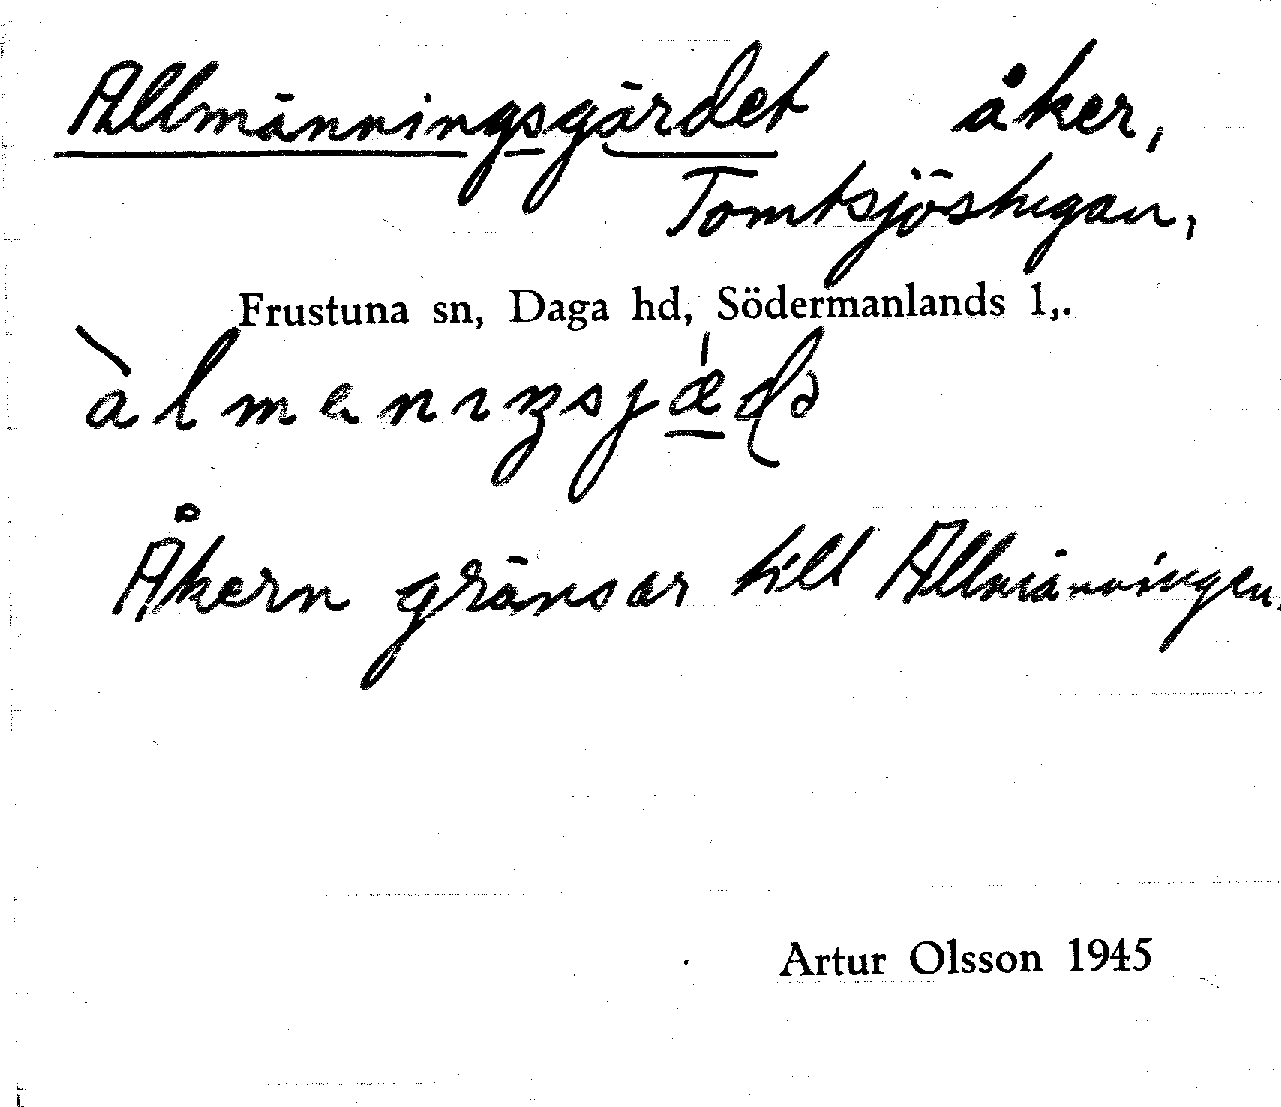 Allmänningsgärdet åker,
Tomtsjöstugan,
Frustuna sn, Daga hd, Södermanlands l,.
àlmenıŋsjæ̲ḍə
Åkern gränsar till Allmänningen.
Artur Olsson 1945